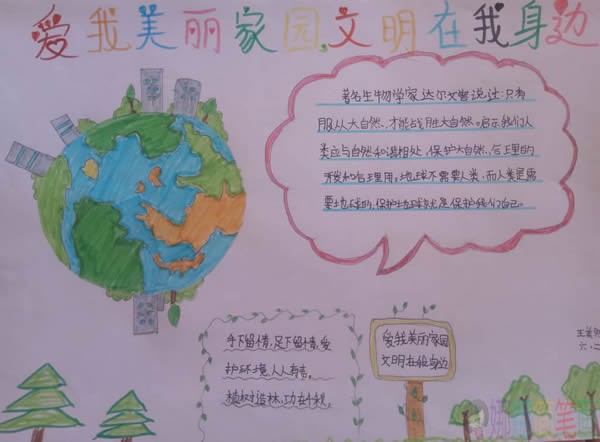 爱我美丽家园,文明在我身边
著名生物学家达尔文曾说过:只有
服从大自然,才能战胜大自然。启示我们人
类应与自然和谐相处,保护大自然,合理的
开发和合理用,地球不需要人类,而人类更需
要地球的,保护地球就是保护我们自己。
手下留情,足下留情,爱
护环境,人人有责。
植树造林,功在千秋。
爱我美丽家园
文明在我身边
六·二